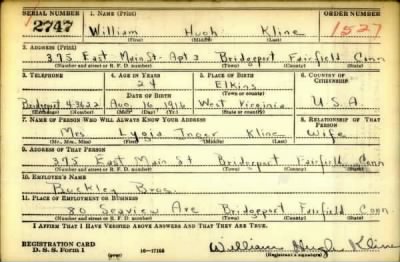 SERIAL NUMBER 1. NAME (Print) ORDER NUMBER
2747 William Hugh Kline 1527
2. ADDRESS (Print)
375 East Main St. Apt 3 Bridgeport Fairfield Conn
(Number and street or R. F. D. number) (Town) (County) (State)
3. TELEPHONE 4. AGE IN YEARS 5. PLACE OF BIRTH 6. COUNTRY OF CITIZENSHIP
24 Elkins
DATE OF BIRTH (Town or county)
Bridgeport 4-3622 Aug 16 1916 West Virginia U.S.A.
(Exchange) (Number) (Mo.) (Day) (Yr.) (State or country)
7. NAME OF PERSON WHO WILL ALWAYS KNOW YOUR ADDRESS 8. RELATIONSHIP OF THAT PERSON
Mrs Lygia Kline Wife
(Mr., Mrs., Miss) (First) (Middle) (Last)
9. ADDRESS OF THAT PERSON
375 East Main St Bridgeport Fairfield Conn
(Number and street or R. F. D. number) (Town) (County) (State)
10. EMPLOYER'S NAME
Buckley Bros.
11. PLACE OF EMPLOYMENT OR BUSINESS
80 Seaview Ave Bridgeport Fairfield Conn.
(Number and street or R. F. D. number) (Town) (County) (State)
I AFFIRM THAT I HAVE VERIFIED ABOVE ANSWERS AND THAT THEY ARE TRUE.
REGISTRATION CARD
D. S. S. Form 1 (over) William Hugh Kline
(Registrant's signature)